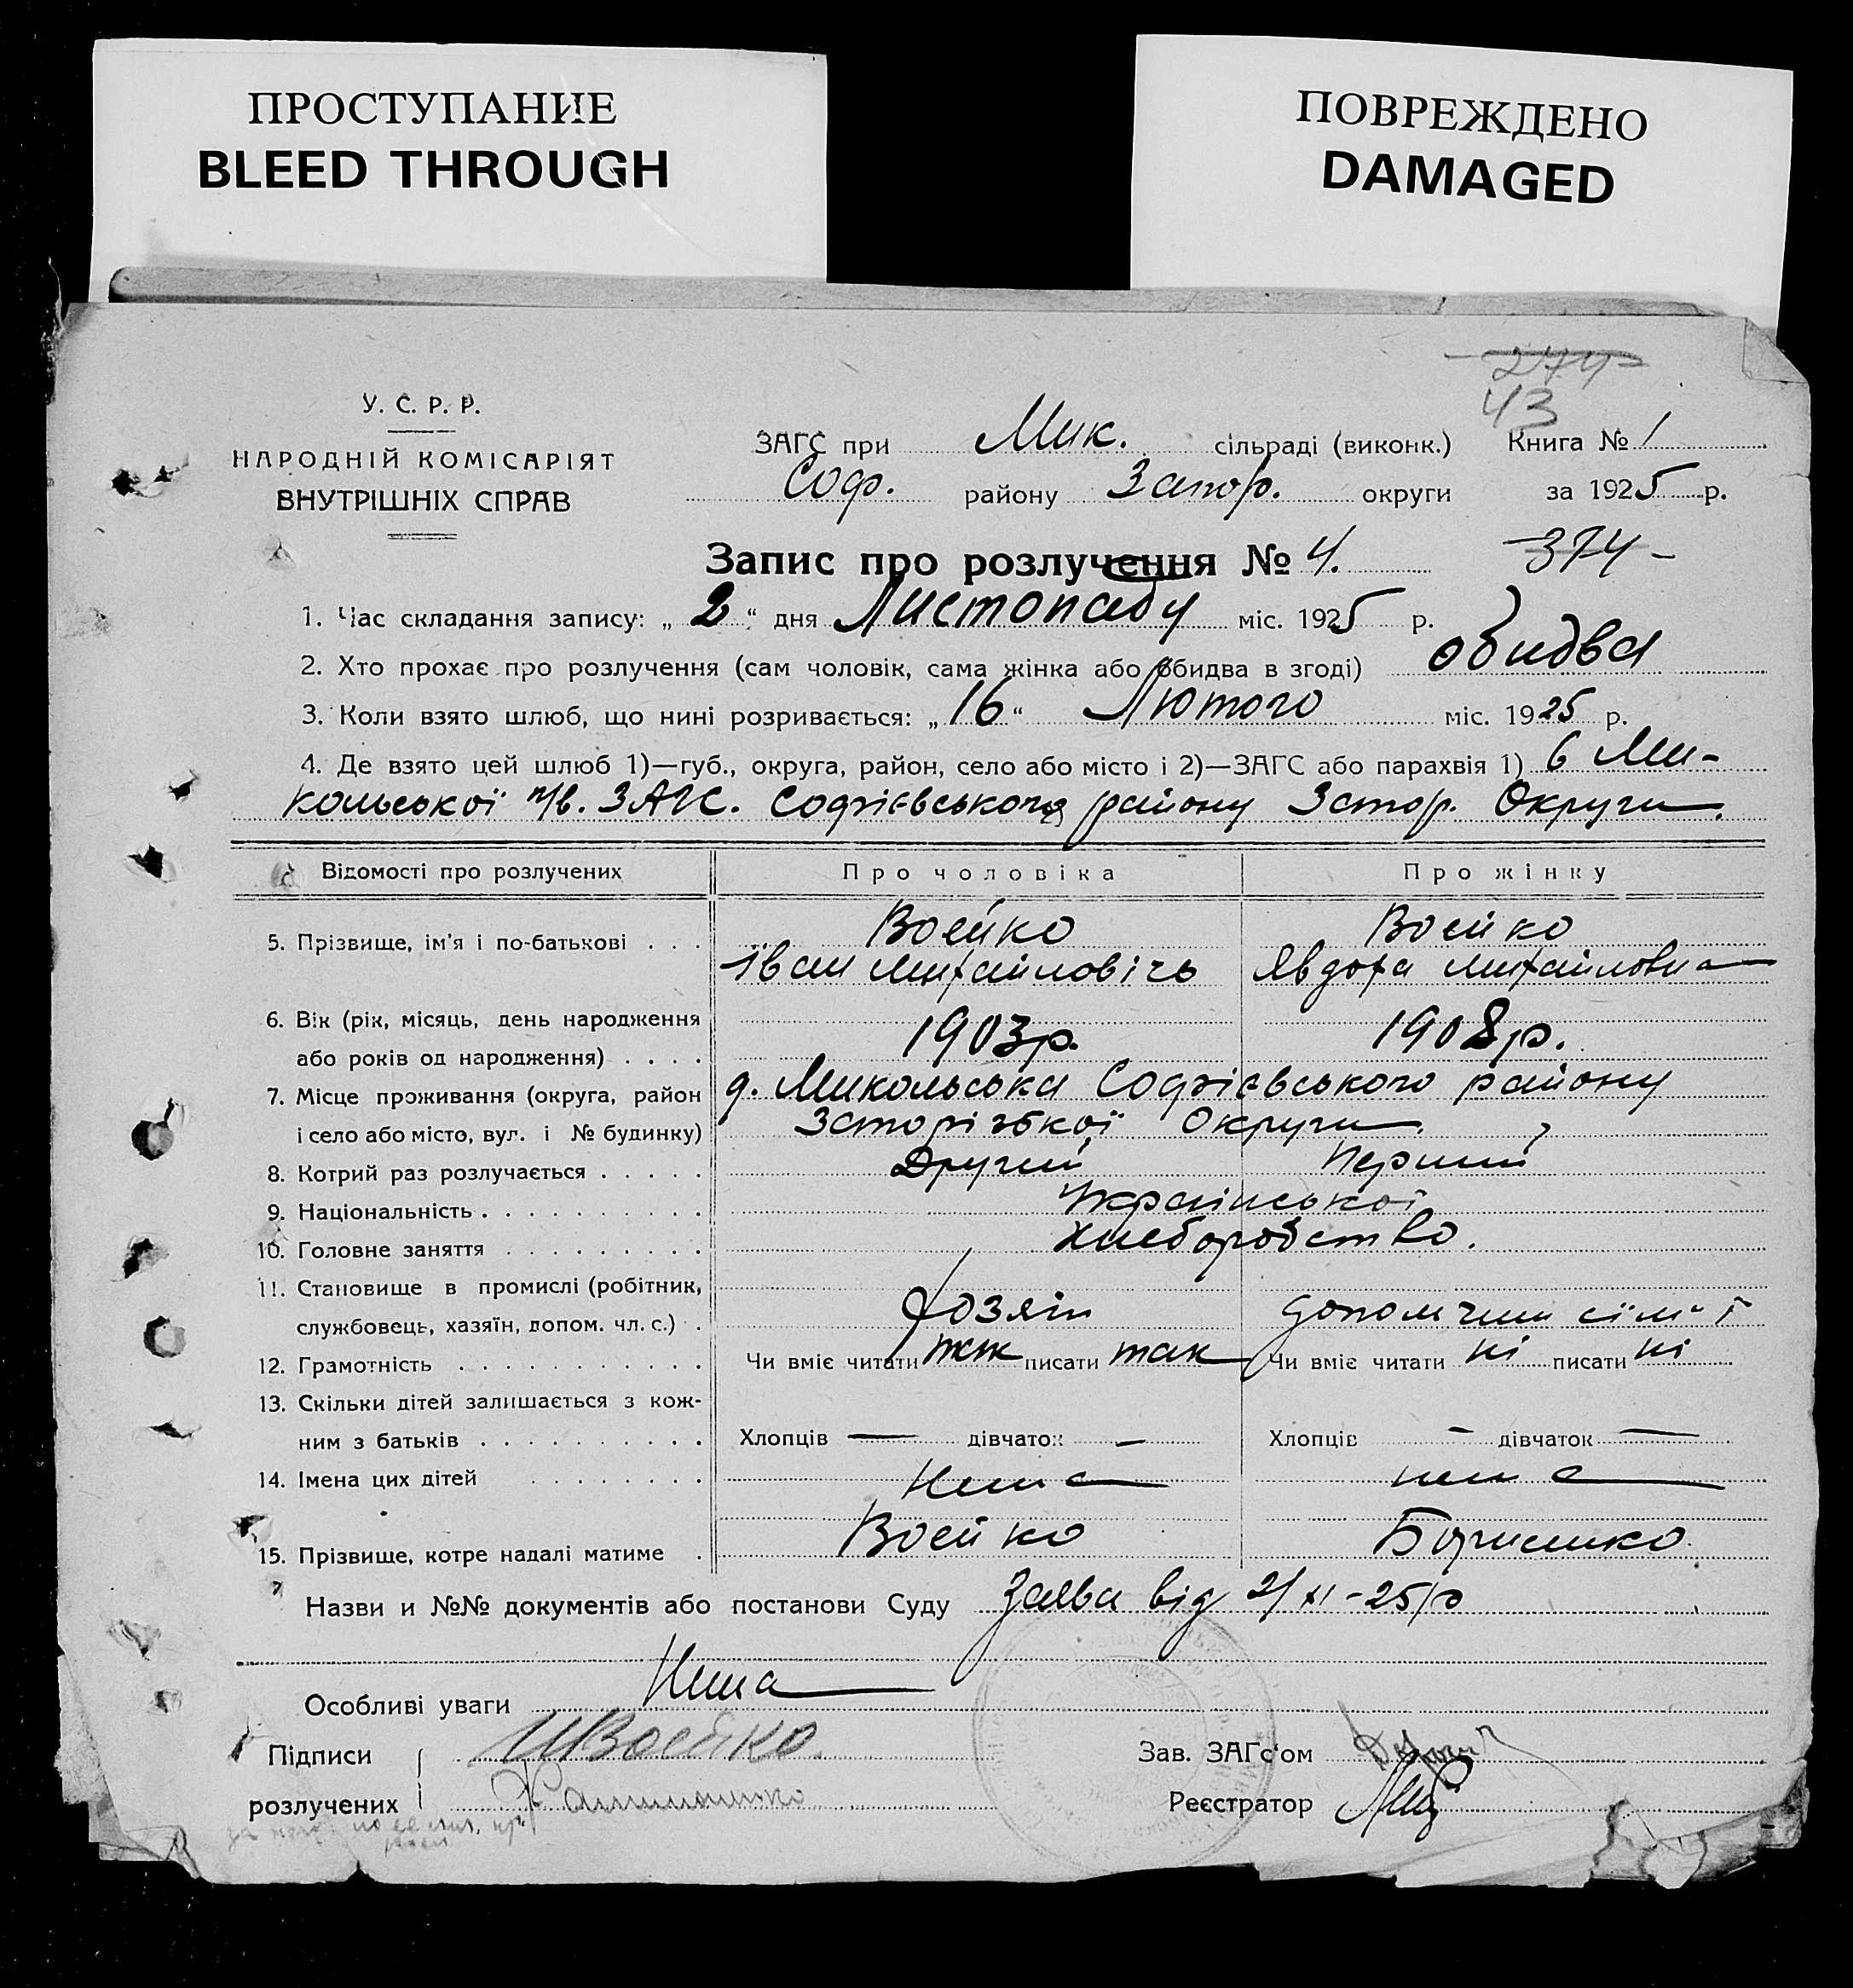 ПРОСТУПАНИЕ
BLEED THROUGH
ПОВРЕЖДЕНО
DAMAGED
274
43
У. С. Р. Р.
НАРОДНІЙ КОМІСАРІЯТ
ВНУТРІШНІХ СПРАВ
ЗАГС при Мик. сільраді (виконк.) Книга № 1
Соф. району Запор. округи за 1925 р.
Запис про розлучення № 4. 374 -
1. Час складання запису: „ 2 “ дня Листопаду міс. 1925 р.
2. Хто прохає про розлучення (сам чоловік, сама жінка або обидва в згоді) обидва
3. Коли взято шлюб, що нині розривається: „ 16 “ Лютого міс. 1925 р.
4. Де взято цей шлюб 1)—губ., округа, район, село або місто і 2)—ЗАГС або парахвія 1) в Ми-
кольської ЗАГС. Софиєвського району Запор. Округи.
Відомості про розлучених Про чоловіка Про жінку
5. Прізвище, ім'я і по-батькові . . . Воейко Воейко
Іван Михайловічь Явдоха Михайловна
6. Вік (рік, місяць, день народження
або років од народження) . . . . 1903р. 1908р.
7. Місце проживання (округа, район д. Микольська Софиєвського району
і село або місто, вул. і № будинку) Запорізької Округи.
8. Котрий раз розлучається . . . . . Другий Перший
9. Національність . . . . . . . . . . Української
10. Головне заняття . . . . . . . . . Хлеборобство.
11. Становище в промислі (робітник,
службовець, хазяїн, допом. чл. с.) . Хозяін допомочий сімʼї
12. Грамотність . . . . . . . . . . . Чи вміє читати так писати так Чи вміє читати ні писати ні
13. Скільки дітей залишається з кож-
ним з батьків . . . . . . . . . . Хлопців — дівчаток — Хлопців — дівчаток —
14. Імена цих дітей . . . . . . . . Нема нема
15. Прізвище, котре надалі матиме . Воейко Борисенко
Назви и №№ документів або постанови Суду Заява від 2/XI-25р
Особливі уваги Нема
Підписи ИВоейко. Зав. ЗАГс'ом
розлучених Реєстратор